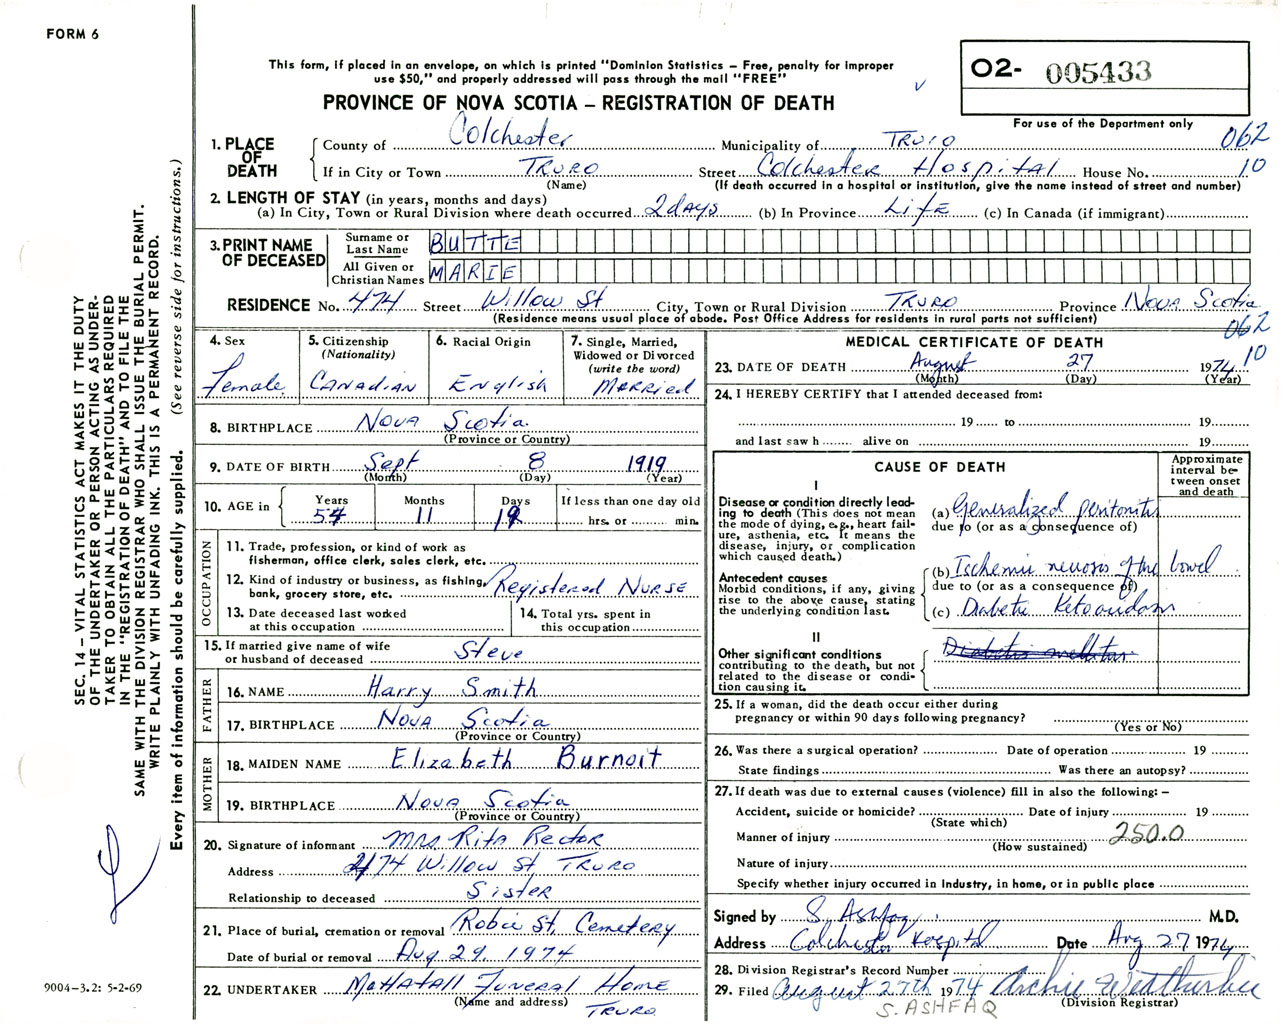 FORM 6
This form, if placed in an envelope, on which is printed "Dominion Statistics – Free, penalty for improper
use $50," and properly addressed will pass through the mail "FREE"
PROVINCE OF NOVA SCOTIA – REGISTRATION OF DEATH
O2- 005433
For use of the Department only
062
10
1. PLACE OF DEATH
County of Colchester Municipality of Truro
If in City or Town Truro Street Colchester Hospital House No.
(Name) (If death occurred in a hospital or institution, give the name instead of street and number)
2. LENGTH OF STAY (in years, months and days)
(a) In City, Town or Rural Division where death occurred 2 days (b) In Province Life (c) In Canada (if immigrant)
3. PRINT NAME OF DECEASED
Surname or Last Name BUTTE
All Given or Christian Names MARIE
RESIDENCE No. 474 Street Willow St City, Town or Rural Division Truro Province Nova Scotia
(Residence means usual place of abode. Post Office Address for residents in rural parts not sufficient)
062
10
4. Sex
Female
5. Citizenship
(Nationality)
Canadian
6. Racial Origin
English
7. Single, Married,
Widowed or Divorced
(write the word)
Married
8. BIRTHPLACE Nova Scotia
(Province or Country)
9. DATE OF BIRTH Sept 8 1919
(Month) (Day) (Year)
10. AGE in
Years 54
Months 11
Days 19
If less than one day old
hrs. or min.
OCCUPATION
11. Trade, profession, or kind of work as
fisherman, office clerk, sales clerk, etc.
12. Kind of industry or business, as fishing,
bank, grocery store, etc. Registered Nurse
13. Date deceased last worked
at this occupation
14. Total yrs. spent in
this occupation
15. If married give name of wife
or husband of deceased Steve
FATHER
16. NAME Harry Smith
17. BIRTHPLACE Nova Scotia
(Province or Country)
MOTHER
18. MAIDEN NAME Elizabeth Burnoit
19. BIRTHPLACE Nova Scotia
(Province or Country)
20. Signature of informant Mrs Rita Rector
Address 474 Willow St Truro
Relationship to deceased Sister
21. Place of burial, cremation or removal Robie St. Cemetery
Date of burial or removal Aug 29, 1974
22. UNDERTAKER Mattatall Funeral Home
(Name and address) Truro
MEDICAL CERTIFICATE OF DEATH
23. DATE OF DEATH August 27 1974
(Month) (Day) (Year)
24. I HEREBY CERTIFY that I attended deceased from:
19 to 19
and last saw h alive on 19
CAUSE OF DEATH
Approximate
interval be-
tween onset
and death
I
Disease or condition directly lead-
ing to death (This does not mean
the mode of dying, e.g., heart fail-
ure, asthenia, etc. It means the
disease, injury, or complication
which caused death.)
(a) Generalized peritonitis
due to (or as a consequence of)
Antecedent causes
Morbid conditions, if any, giving
rise to the above cause, stating
the underlying condition last.
(b) Ischemic necrosis of the bowel
due to (or as a consequence of)
(c) Diabetic Ketoacidosis
II
Other significant conditions
contributing to the death, but not
related to the disease or condi-
tion causing it.
Diabetis mellitus
25. If a woman, did the death occur either during
pregnancy or within 90 days following pregnancy?
(Yes or No)
26. Was there a surgical operation? Date of operation 19
State findings Was there an autopsy?
27. If death was due to external causes (violence) fill in also the following: –
Accident, suicide or homicide? Date of injury 19
(State which)
Manner of injury 250.0
(How sustained)
Nature of injury
Specify whether injury occurred in industry, in home, or in public place
Signed by S. Ashfaq M.D.
Address Colchester Hospital Date Aug 27 1974
28. Division Registrar's Record Number
29. Filed August 27th 1974 Archie Wetherbee
(Division Registrar)
S. ASHFAQ
SEC. 14 – VITAL STATISTICS ACT MAKES IT THE DUTY
OF THE UNDERTAKER OR PERSON ACTING AS UNDER-
TAKER TO OBTAIN ALL THE PARTICULARS REQUIRED
IN THE "REGISTRATION OF DEATH" AND TO FILE THE
SAME WITH THE DIVISION REGISTRAR WHO SHALL ISSUE THE BURIAL PERMIT.
WRITE PLAINLY WITH UNFADING INK. THIS IS A PERMANENT RECORD.
Every item of information should be carefully supplied. (See reverse side for instructions.)
9004–3.2: 5-2-69